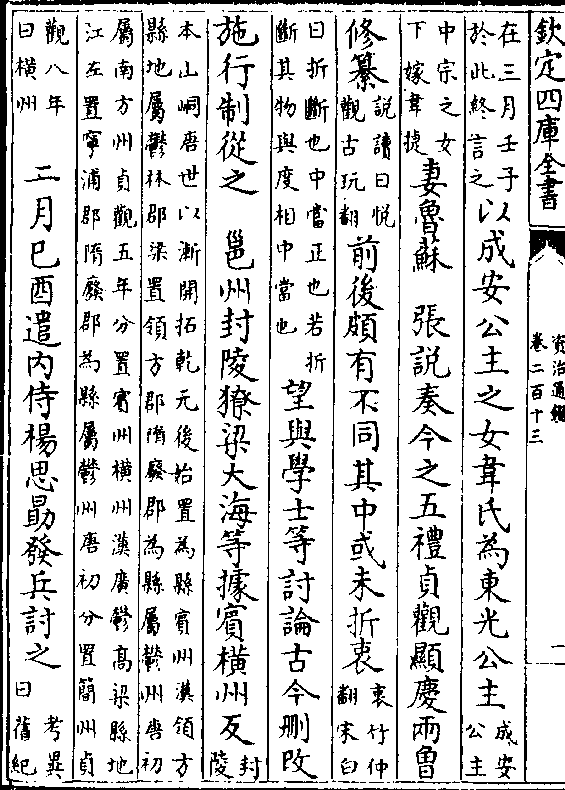 欽定四庫全書
資治通鑑
卷二百十三
一
在三月壬子
於此終言之
以成安公主之女韋氏為東光公主
成安
公主
中宗之女
下嫁韋捷
妻魯蘇　張説奏今之五禮貞觀顯慶兩魯
修纂
説讀曰悅
觀古玩翻
前後頗有不同其中或未折衷
衷竹仲
翻宋白
曰折斷也中當正也若折
斷其物與度相中當也
望與學士等討論古今刪改
施行制從之　邕州封陵獠梁大海等據賓橫州反
封
陵
本山峒唐世以漸開拓乾元後始置為縣賓州漢領方
縣地屬鬱林郡梁置領方郡隋廢郡為縣屬鬱州唐初
屬南方州貞觀五年分置賓州橫州漢廣鬱高梁縣地
江左置寧浦郡隋廢郡為縣屬鬱州唐初分置簡州貞
觀八年
曰橫州
二月己酉遣内侍楊思勗發兵討之
考異
曰舊紀